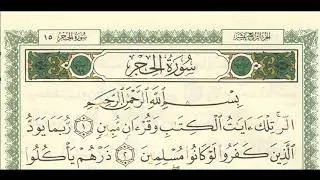 الجزء الرابع عشر
سورة الحجر ١٥
سُورَةُ الحِجْرِ
بِسْمِ اللَّهِ الرَّحْمَٰنِ الرَّحِيمِ
الٓر ۚ تِلْكَ ءَايَٰتُ ٱلْكِتَٰبِ وَقُرْءَانٍ مُّبِينٍ ١ رُّبَمَا يَوَدُّ
ٱلَّذِينَ كَفَرُوا۟ لَوْ كَانُوا۟ مُسْلِمِينَ ٢ ذَرْهُمْ يَأْكُلُوا۟